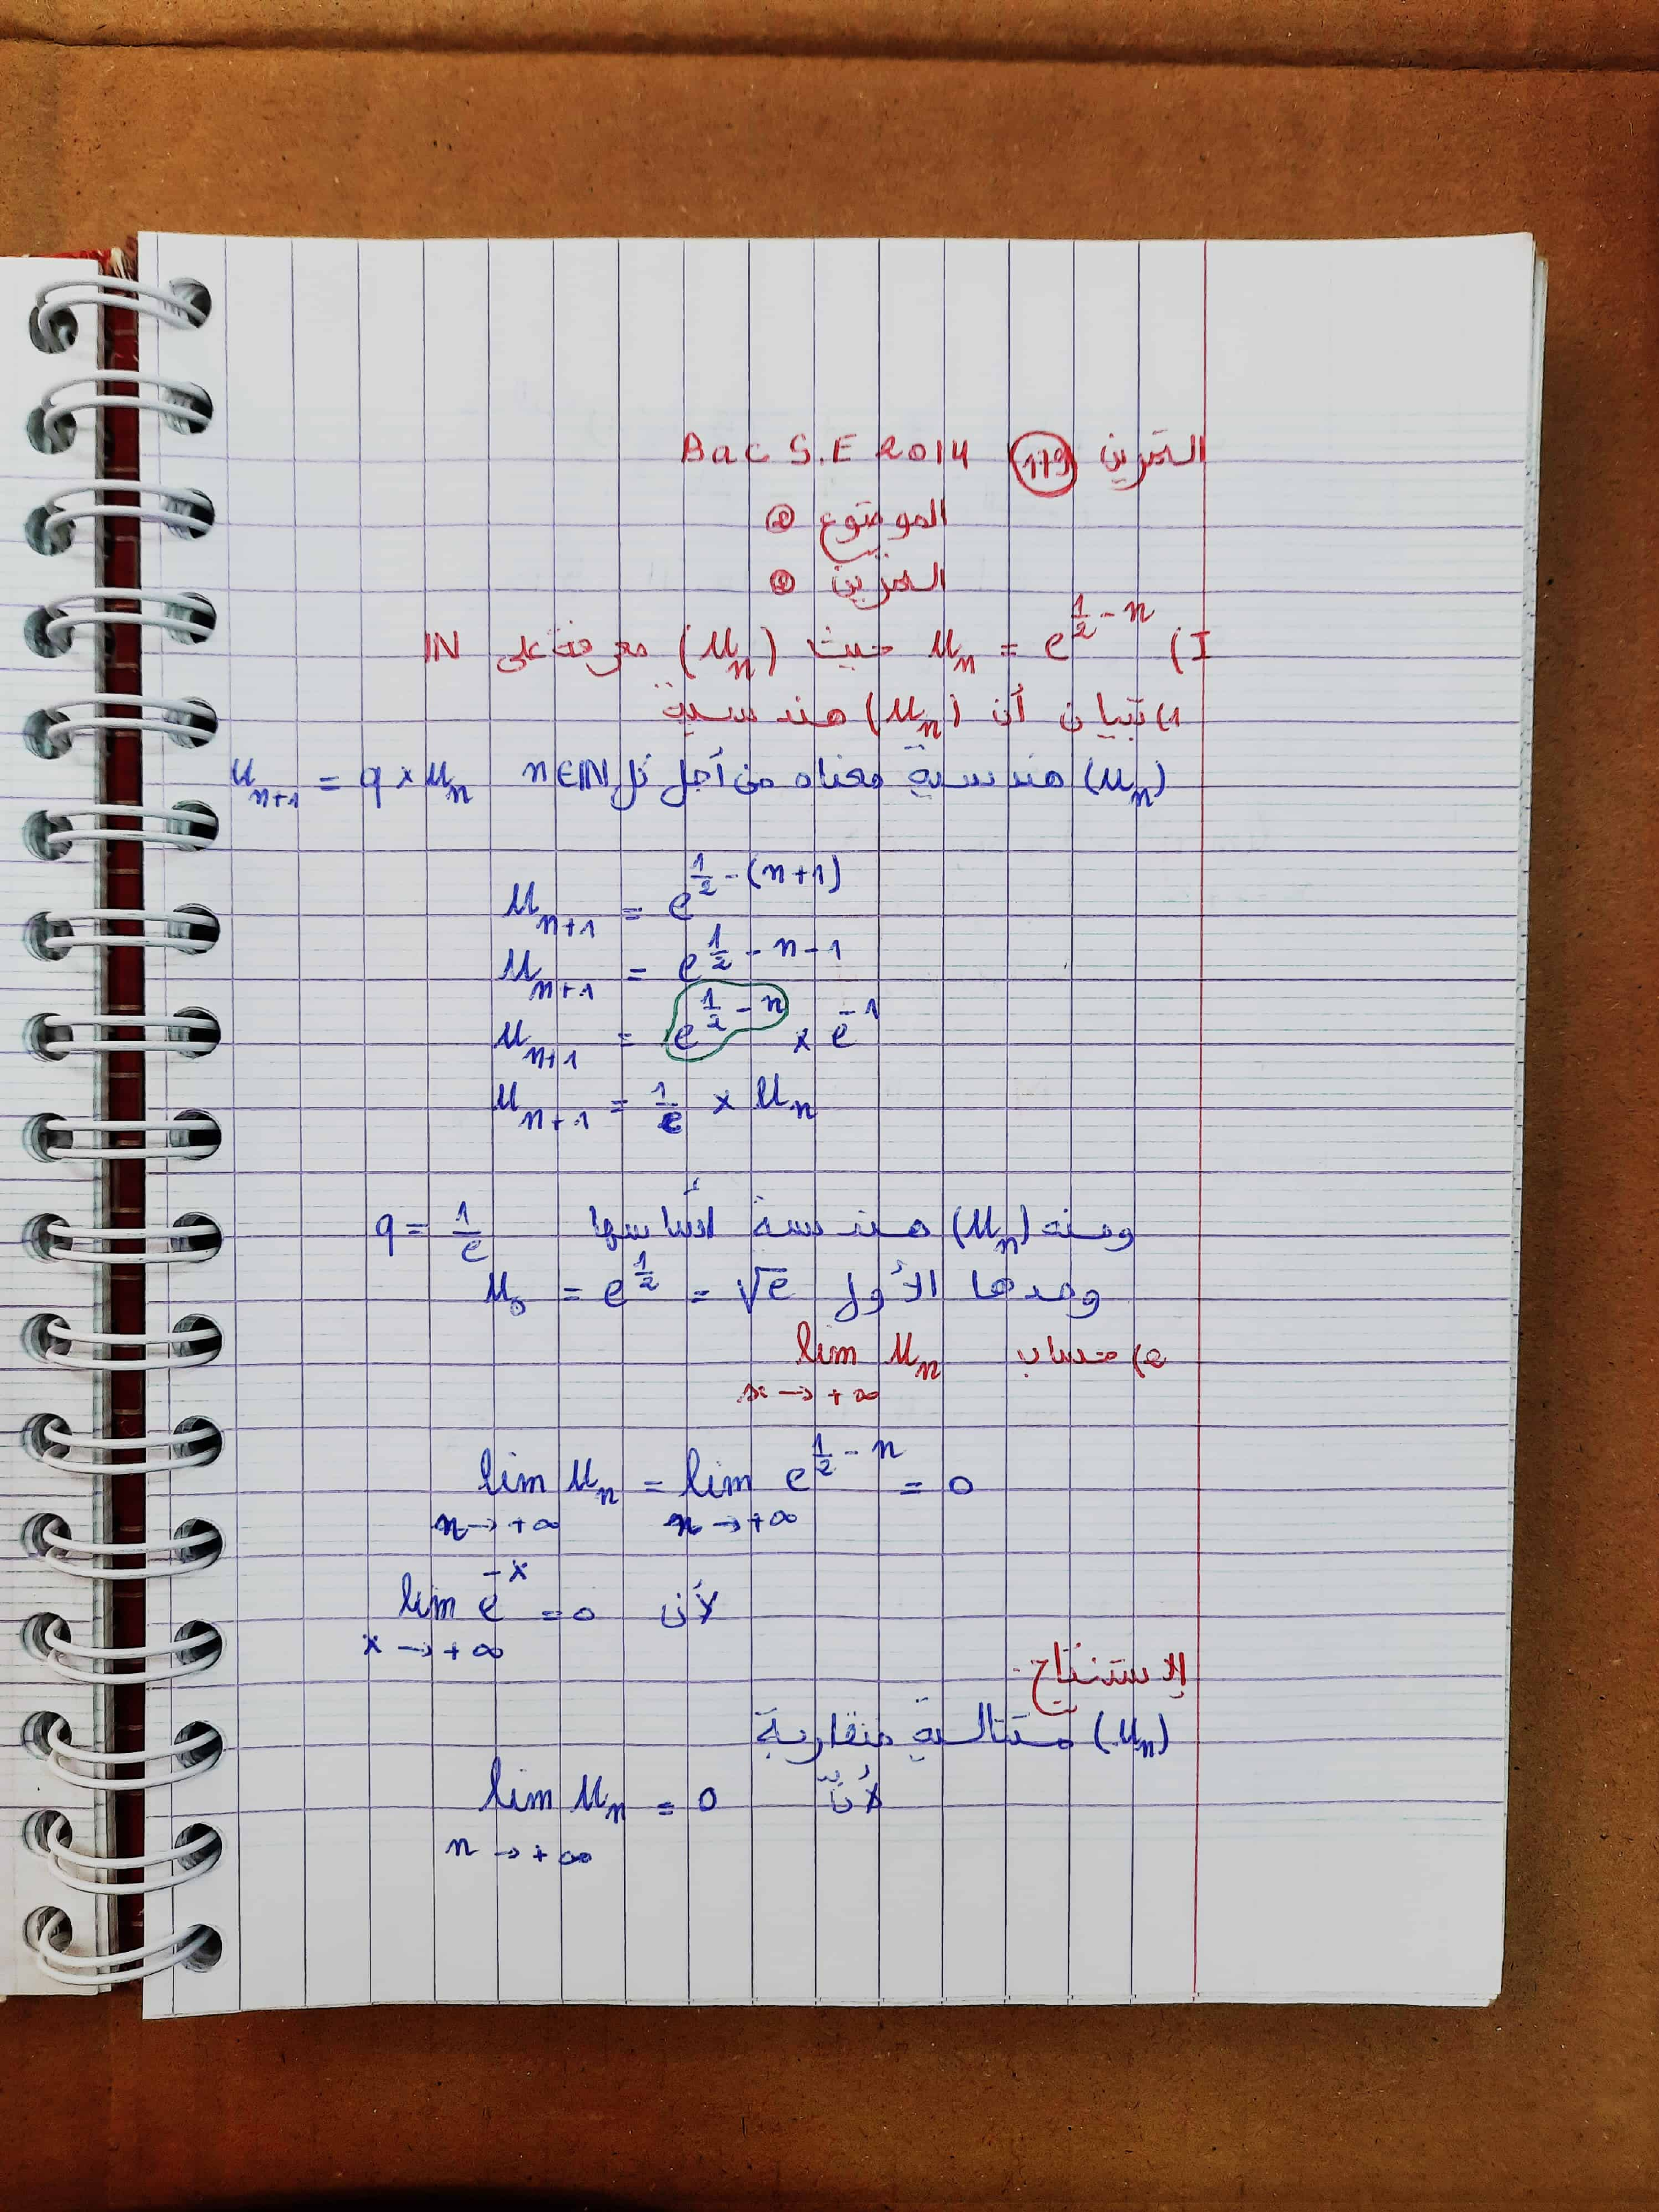 التمرين (179) Bac S.E 2014
الموضوع ②
التمرين ②
I) u_n = e^{1/2 - n} حيث (u_n) معرفة على IN
1) تبيان أن (u_n) هندسية
(u_n) هندسية معناه من أجل كل n∈IN u_{n+1} = q × u_n
u_{n+1} = e^{1/2 - (n+1)}
u_{n+1} = e^{1/2 - n - 1}
u_{n+1} = e^{1/2 - n} × e^{-1}
u_{n+1} = 1/e × u_n
ومنه (u_n) هندسة أساسها q = 1/e
وحدها الأول u_0 = e^{1/2} = √e
2) حساب lim u_n
n → +∞
lim u_n = lim e^{1/2 - n} = 0
n → +∞ n → +∞
لأن lim e^{-x} = 0
x → +∞
الإستنتاج
(u_n) متتالية متقاربة
لأنّ lim u_n = 0
n → +∞